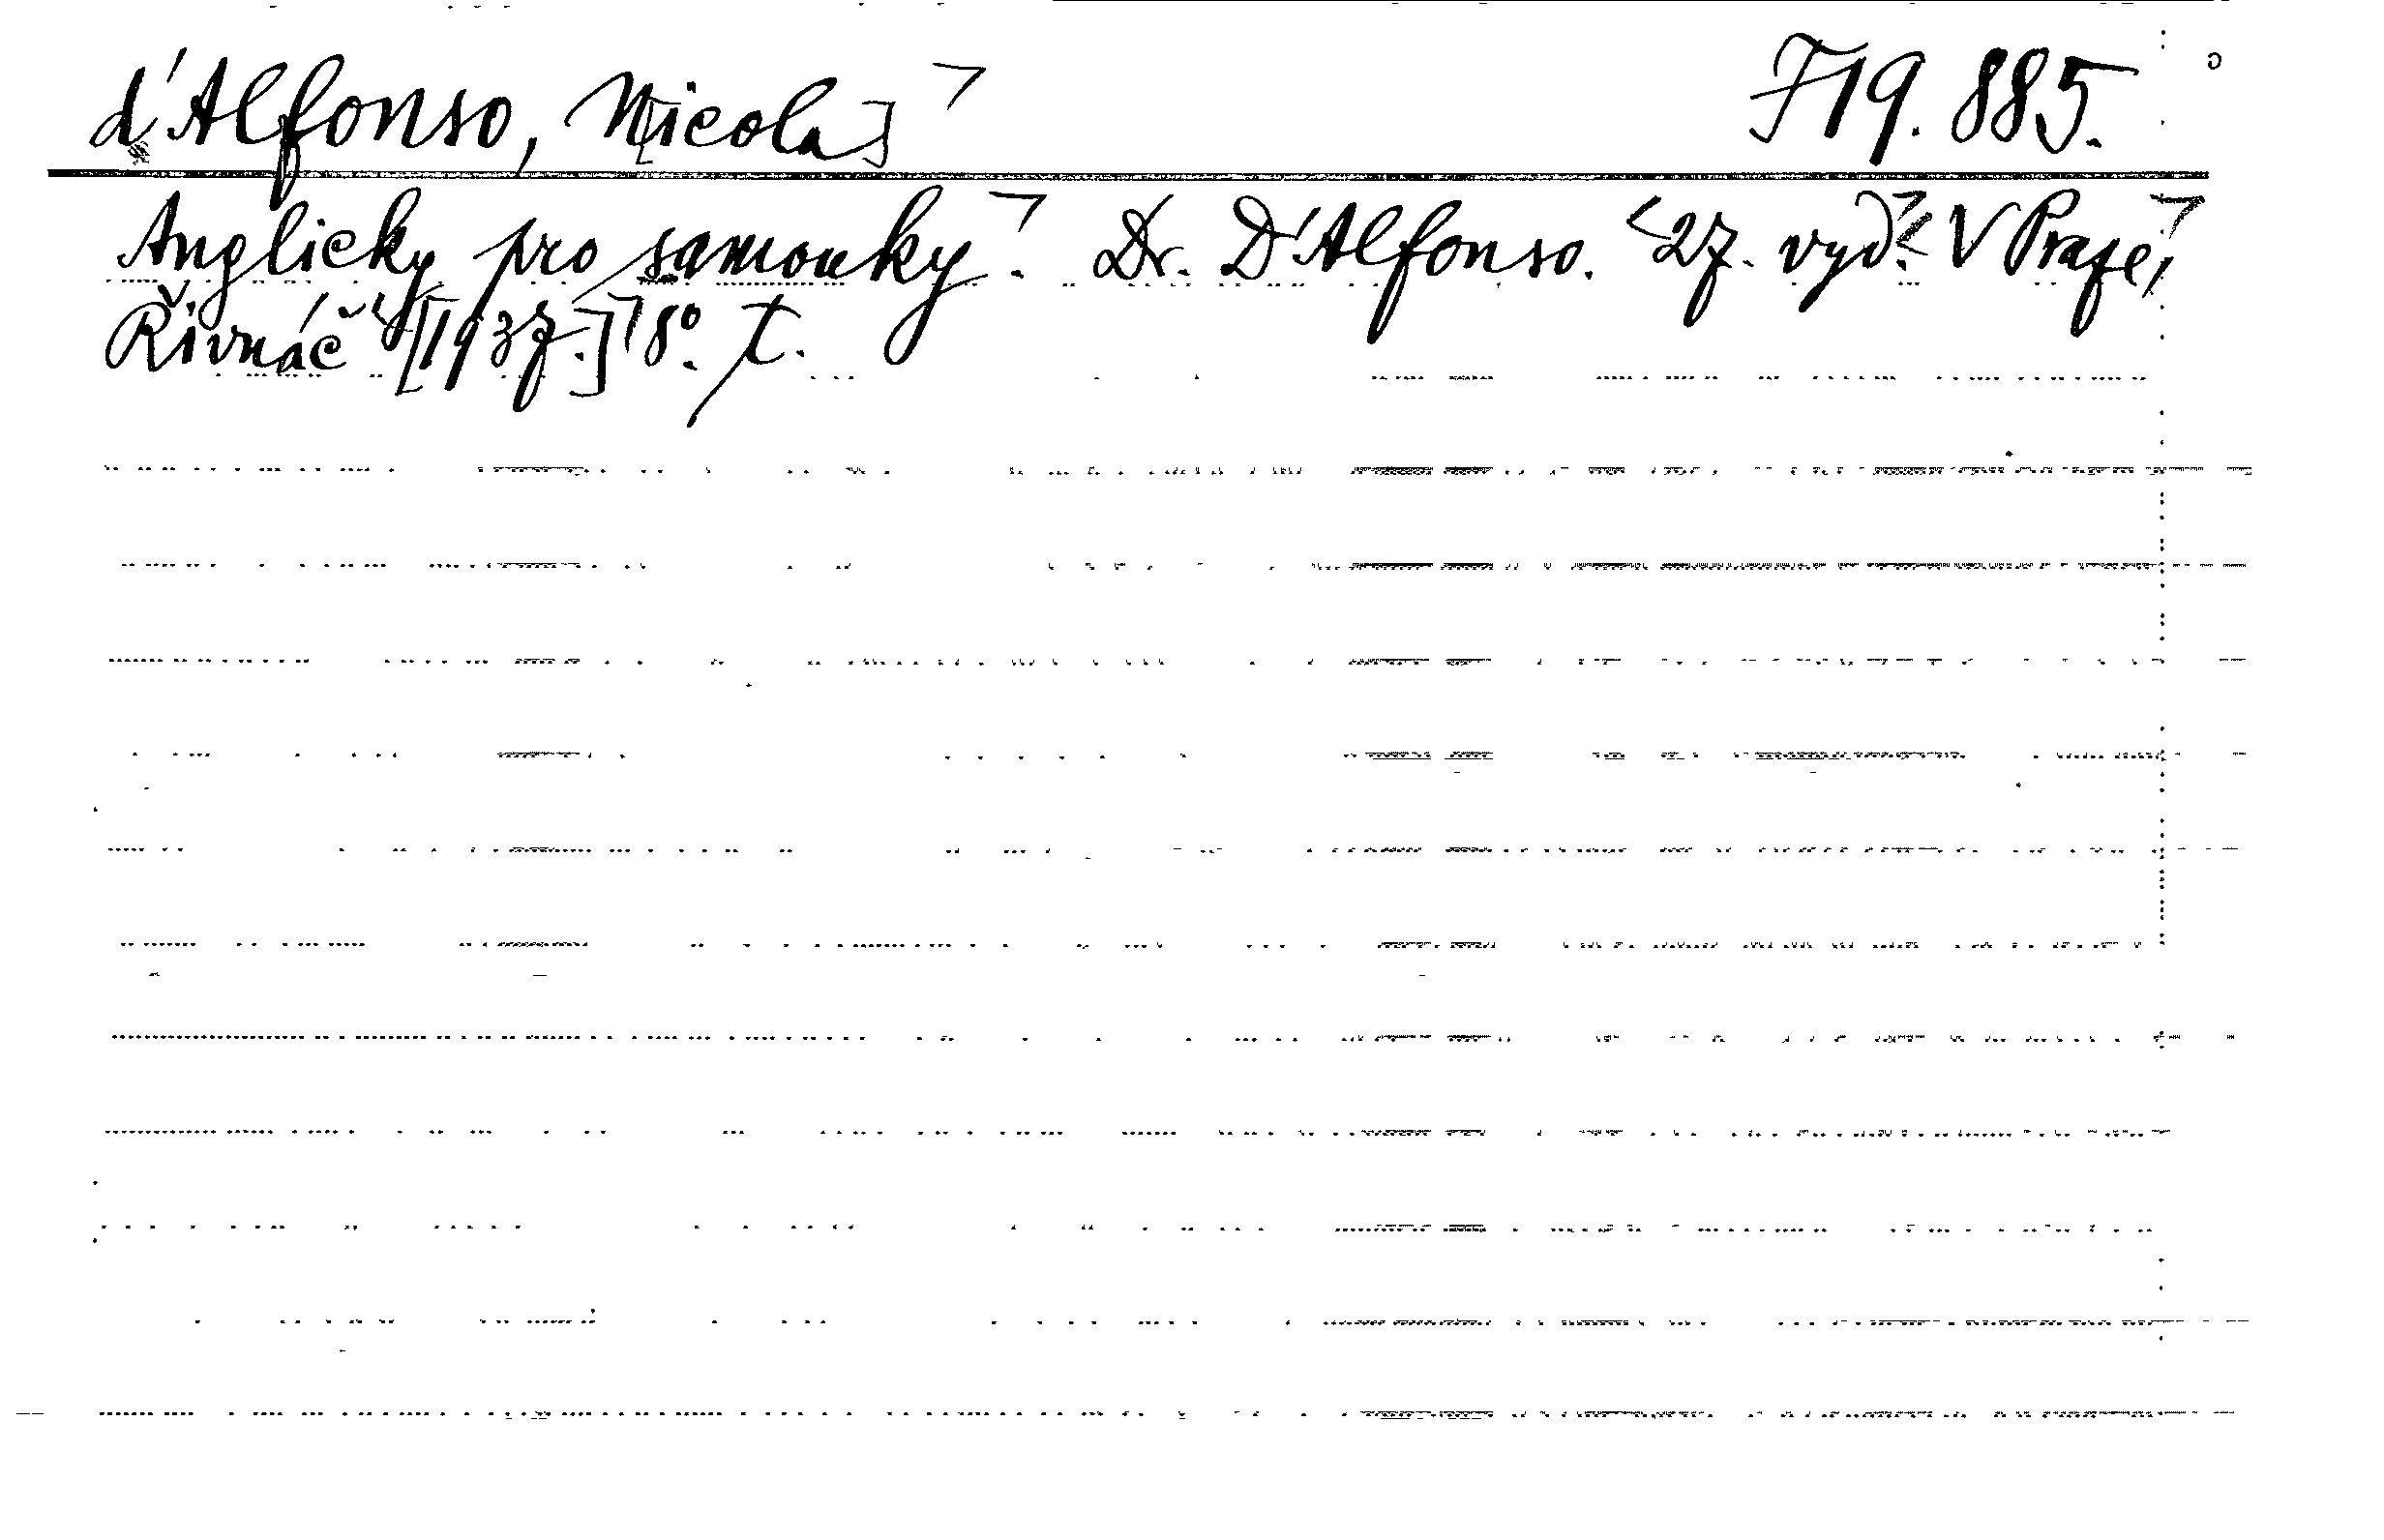 d'Alfonso, N[icola] F 19.885.
Anglicky pro samouky. Dr. D'Alfonso. 27. vyd. V Praze,
Řivnáč [1937.] 8°. T.